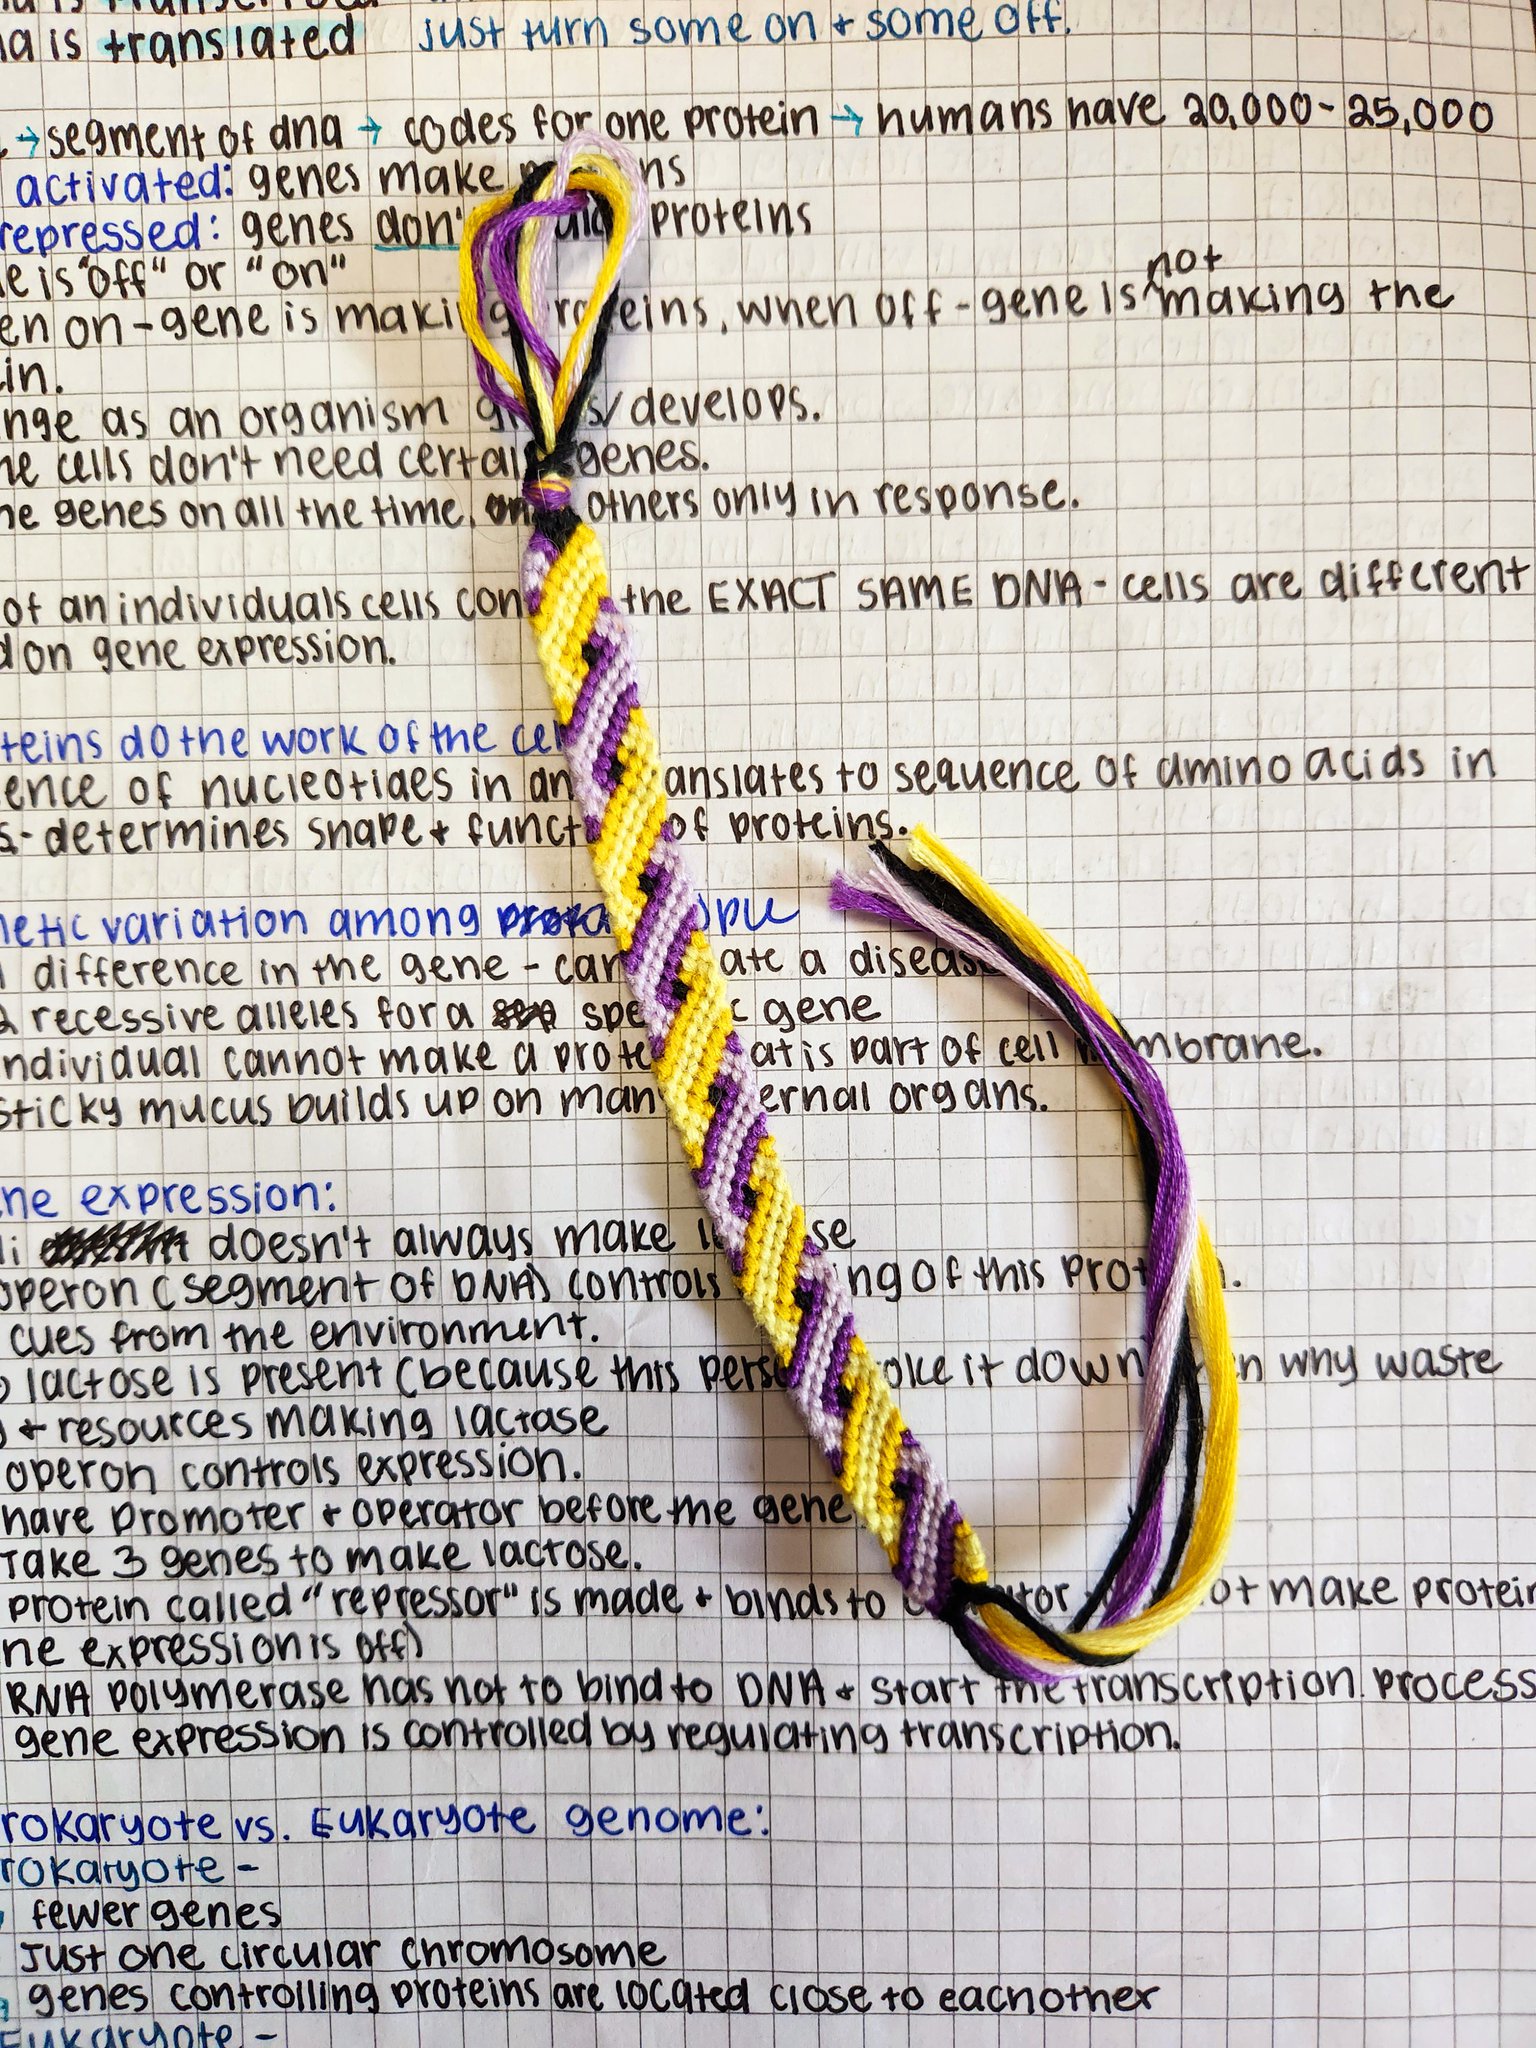 na is translated just turn some on + some off.
→ segment of dna → codes for one protein → humans have 20,000-25,000
activated: genes make
repressed: genes don't proteins
is "off" or "on"
en on-gene is making proteins, when off-gene is not making the
in.
nge as an organism /develops.
ne cells don't need certain genes.
ne genes on all the time, others only in response.
of an individuals cells con the EXACT SAME DNA - cells are different
d on gene expression.
teins do the work of the cel
ence of nucleotides in dna translates to sequence of amino acids in
s- determines shape + funct of proteins.
netic variation among
difference in the gene - can ate a disease
2 recessive alleles for a spe c gene
individual cannot make a prote at is part of cell membrane.
sticky mucus builds up on man ernal organs.
ne expression:
li doesn't always make l se
operon (segment of DNA) controls ing of this protein.
cues from the environment.
lactose is present (because this pers oke it down) n why waste
+ resources making lactase
operon controls expression.
have promoter + operator before the gene
Take 3 genes to make lactose.
protein called "repressor" is made + binds to tor ot make protein
ne expression is off)
RNA polymerase has not to bind to DNA + start the transcription process
gene expression is controlled by regulating transcription.
rokaryote vs. Eukaryote genome:
rokaryote -
fewer genes
Just one circular chromosome
genes controlling proteins are located close to eachother
Eukaryote -